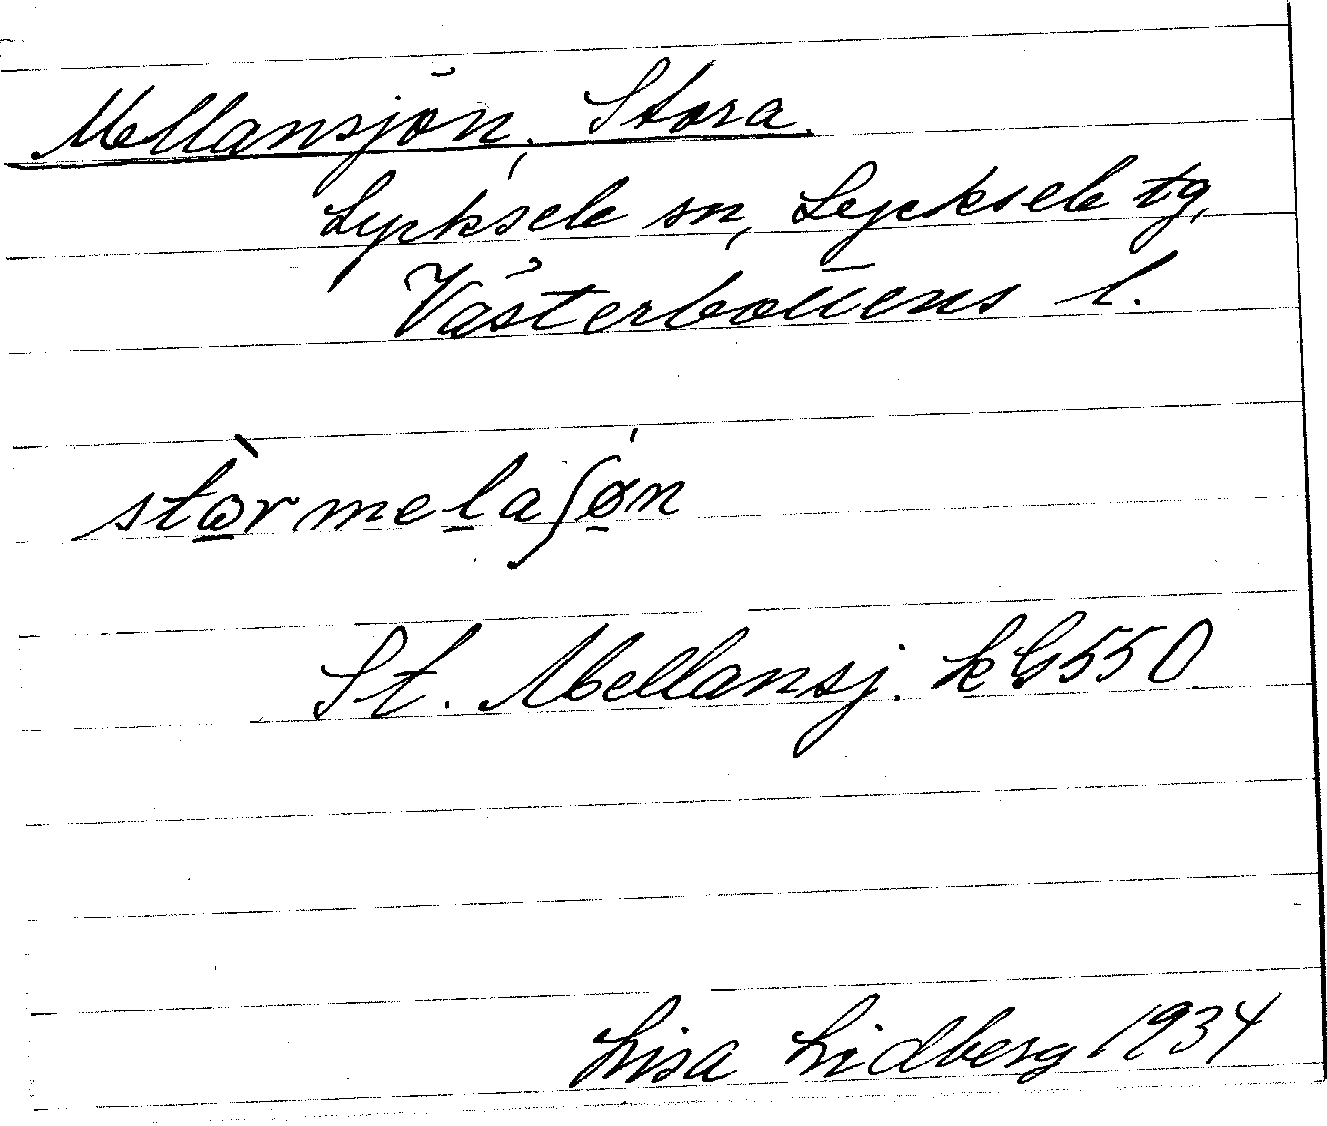 Mellansjön, Stora.
Lycksele sn, Lycksele tg,
Västerbottens l.
stòrmelaʃǿn
St. Mellansj. kG550
Lisa Lidberg 1934